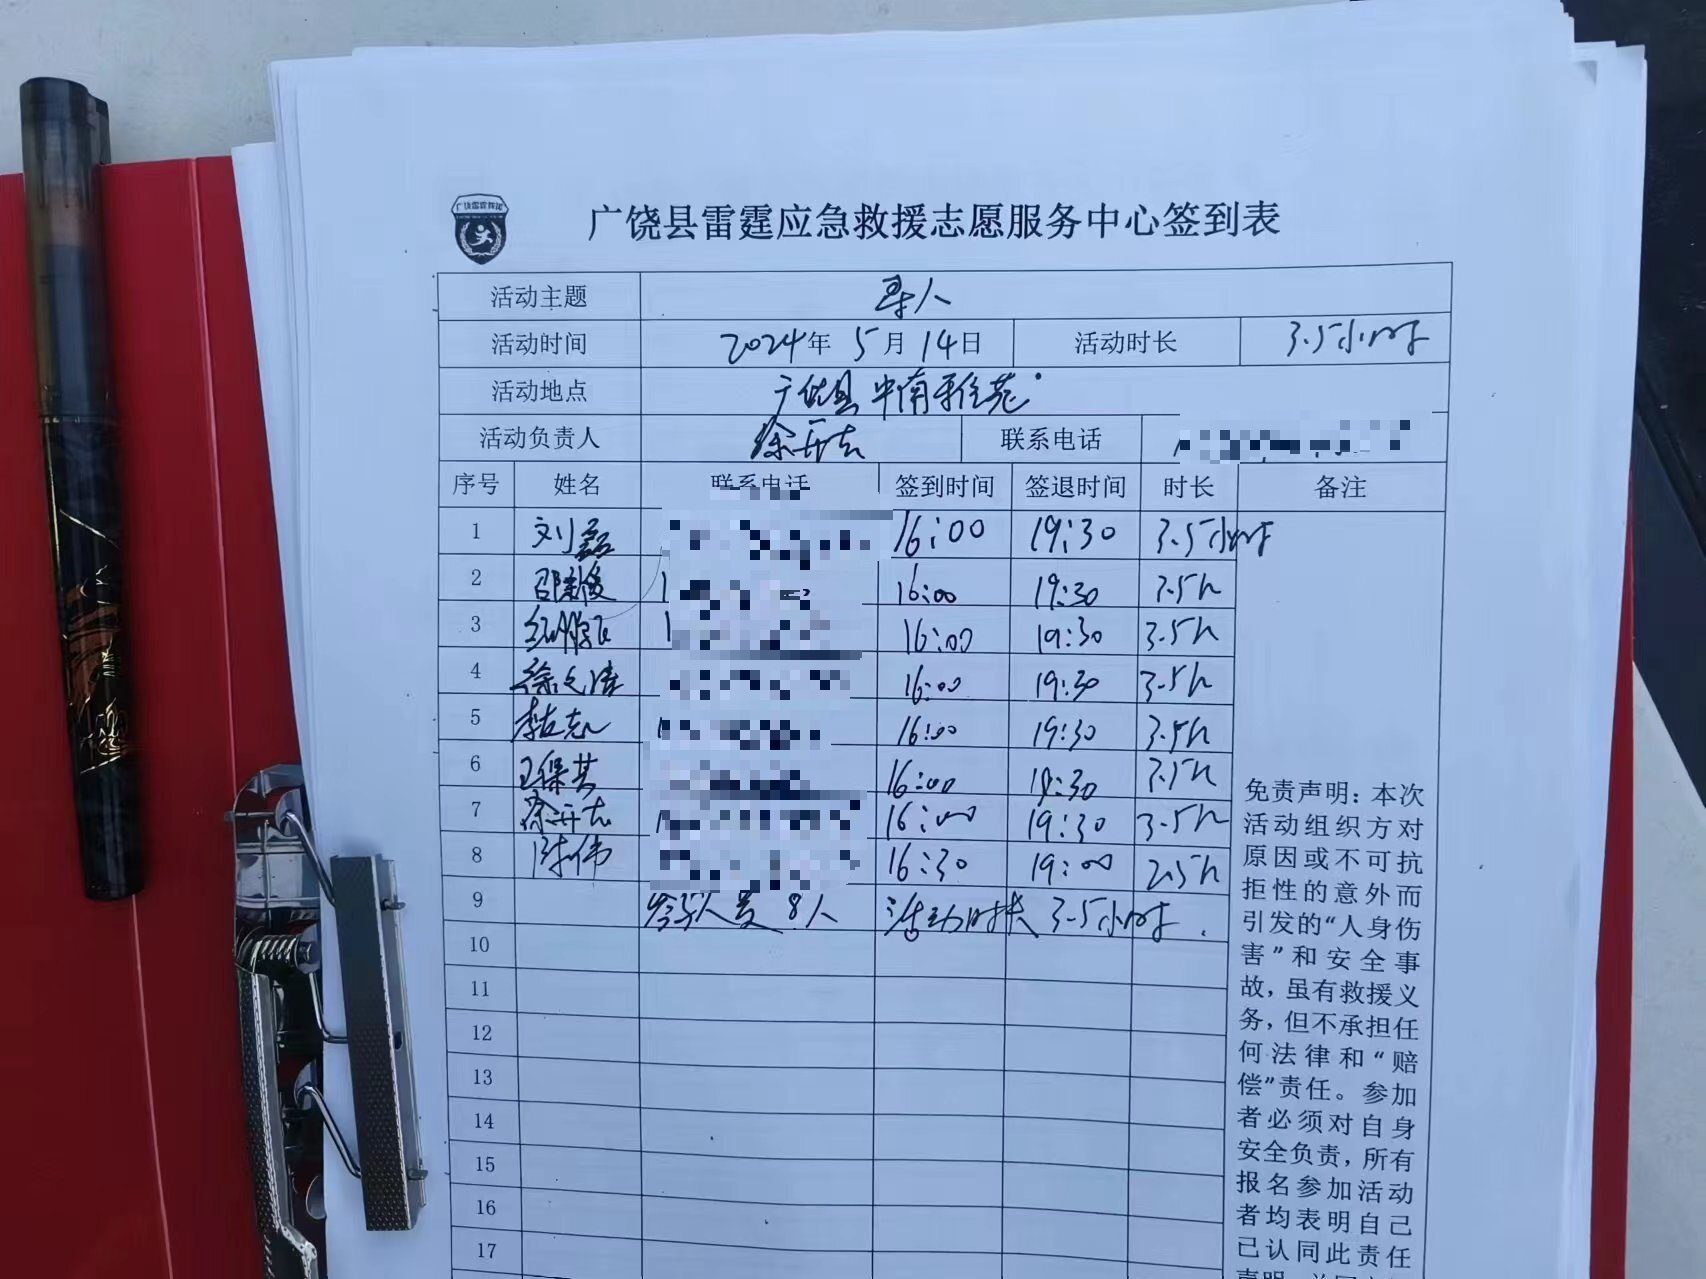 广饶县雷霆应急救援志愿服务中心签到表
活动主题 寻人
活动时间 2024年 5月 14日 活动时长 3.5小时
活动地点 广饶县中南雅苑
活动负责人 联系电话
序号 姓名 联系电话 签到时间 签退时间 时长 备注
1 刘磊 16:00 19:30 3.5小时
2 16:00 19:30 3.5h
3 16:00 19:30 3.5h
4 16:00 19:30 3.5h
5 16:00 19:30 3.5h
6 16:00 19:30 3.5h
7 16:00 19:30 3.5h
8 陈伟 16:30 19:00 2.5h
9 参与人员 8人 活动时长 3.5小时.
10
11
12
13
14
15
16
17
免责声明：本次
活动组织方对
原因或不可抗
拒性的意外而
引发的“人身伤
害”和安全事
故，虽有救援义
务，但不承担任
何法律和“赔
偿”责任。参加
者必须对自身
安全负责，所有
报名参加活动
者均表明自己
已认同此责任